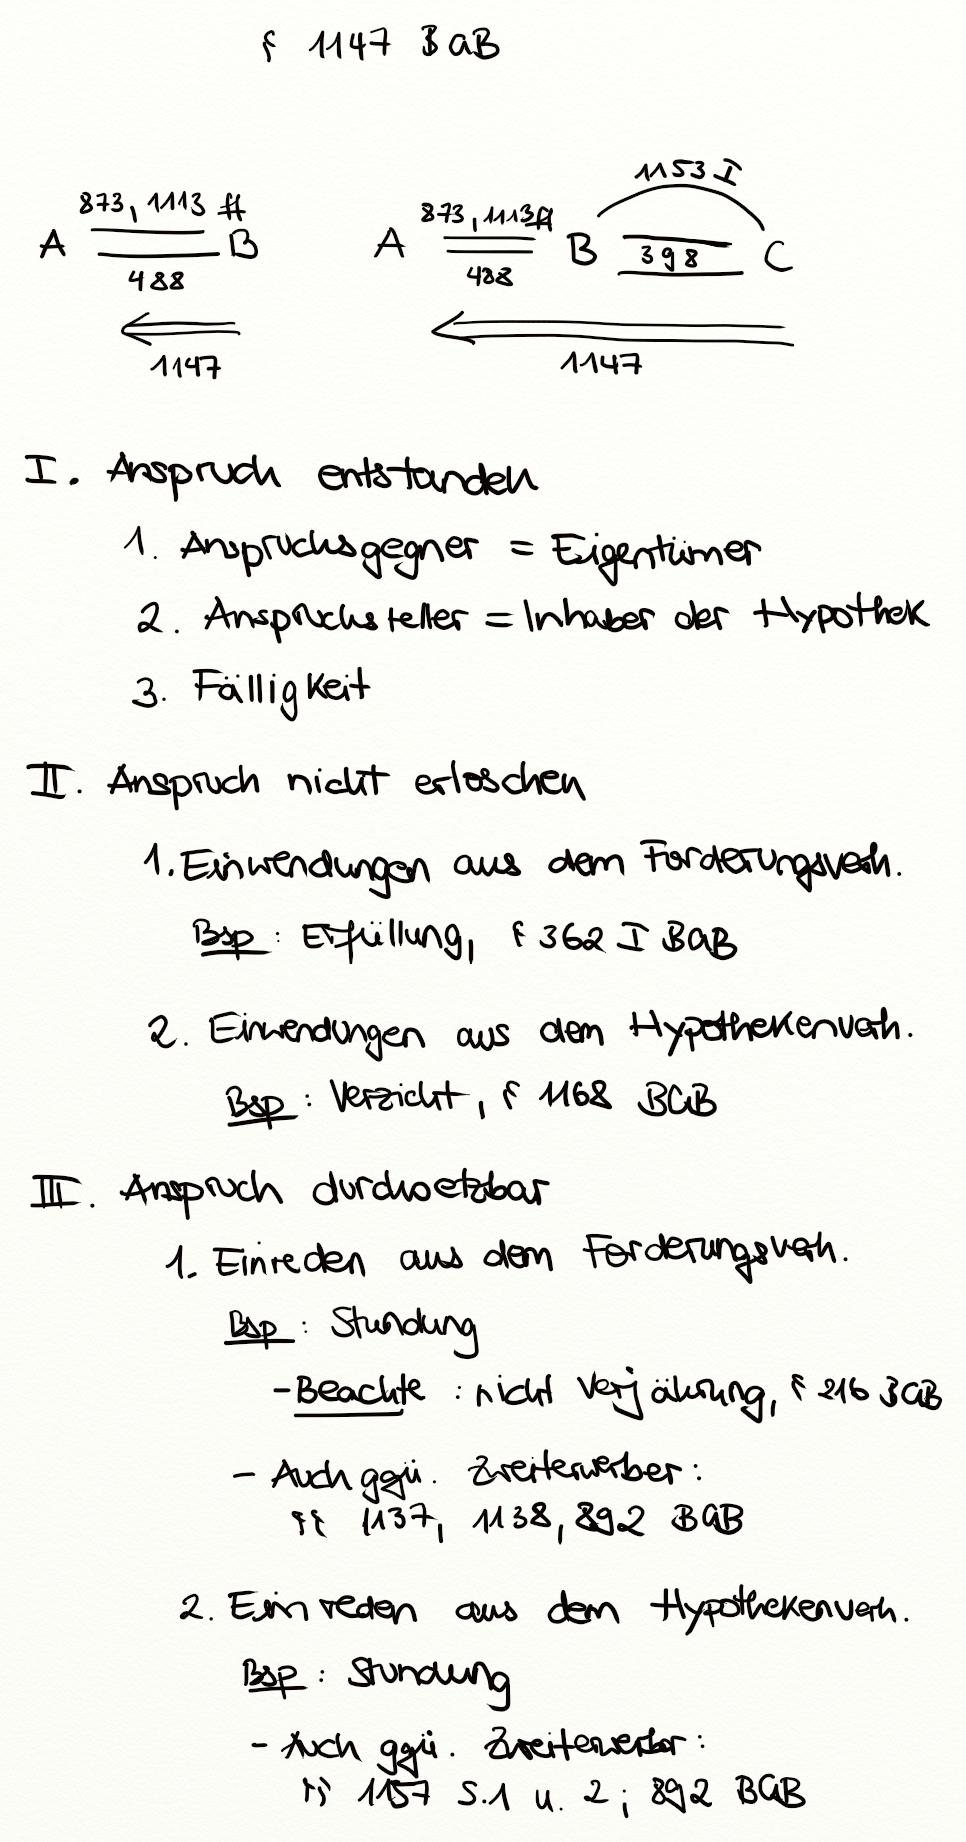 § 1147 BGB
1153 I
873, 1113 ff 873, 1113 ff
A B A B 398 C
488 488
1147 1147
I. Anspruch entstanden
1. Anspruchsgegner = Eigentümer
2. Anspruchsteller = Inhaber der Hypothek
3. Fälligkeit
II. Anspruch nicht erloschen
1. Einwendungen aus dem Forderungsverh.
Bsp: Erfüllung, § 362 I BGB
2. Einwendungen aus dem Hypothekenverh.
Bsp: Verzicht, § 1168 BGB
III. Anspruch durchsetzbar
1. Einreden aus dem Forderungsverh.
Bsp: Stundung
- Beachte: nicht Verjährung, § 216 BGB
- Auch ggü. Zweiterwerber:
§§ 1137, 1138, 892 BGB
2. Einreden aus dem Hypothekenverh.
Bsp: Stundung
- Auch ggü. Zweiterwerber:
§§ 1157 S.1 u. 2; 892 BGB